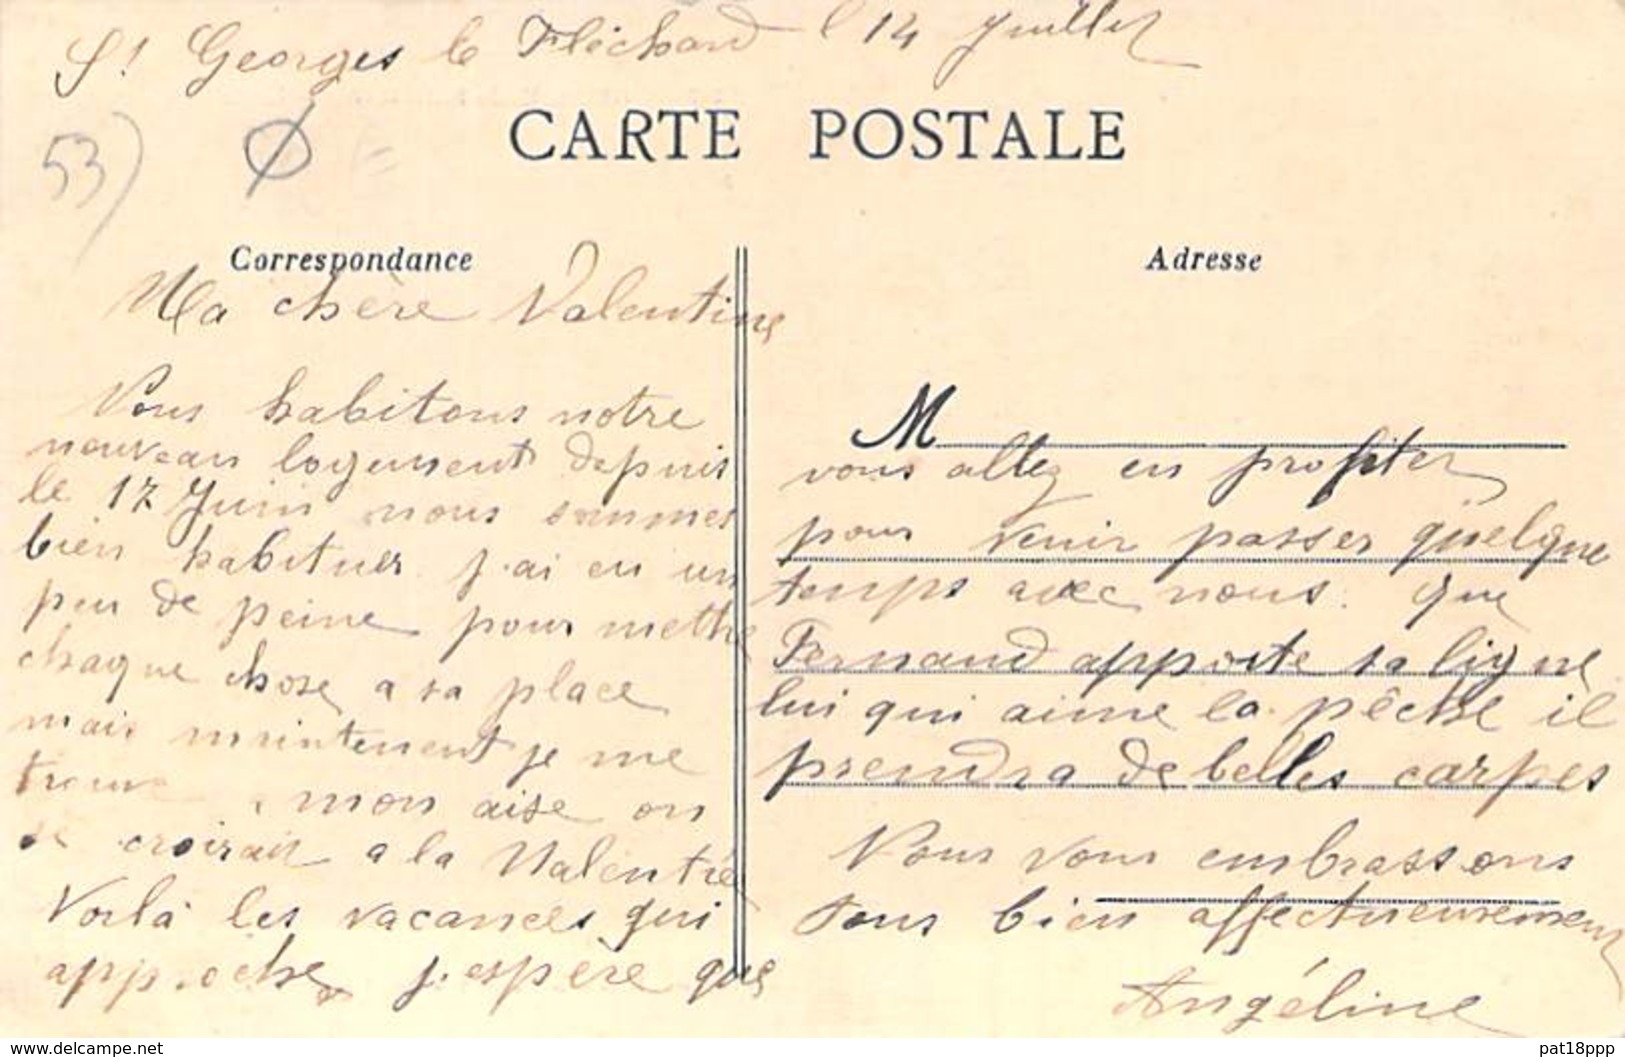 St Georges le Fléchard l 14 Juillet
53)
CARTE POSTALE
Correspondance
Adresse
Ma chère Valentine
Nous habitons notre
nouveau logement depuis
le 17 Juin nous sommes
bien habituer j.ai eu un
peu de peine pour methre
chaque chose a sa place
mais maintenent je me
trouve mon aise on
se croirait a la
Voilà les vacances qui
approche j.espère que
M
vous allez en profiter
pour venir passer quelque
temps avec nous. que
Fernand apporte sa ligne
lui qui aime la pêche il
prendra de belles carpes
Nous vous embrassons
tous bien affectueusement
Angéline
delcampe.net
pat18ppp